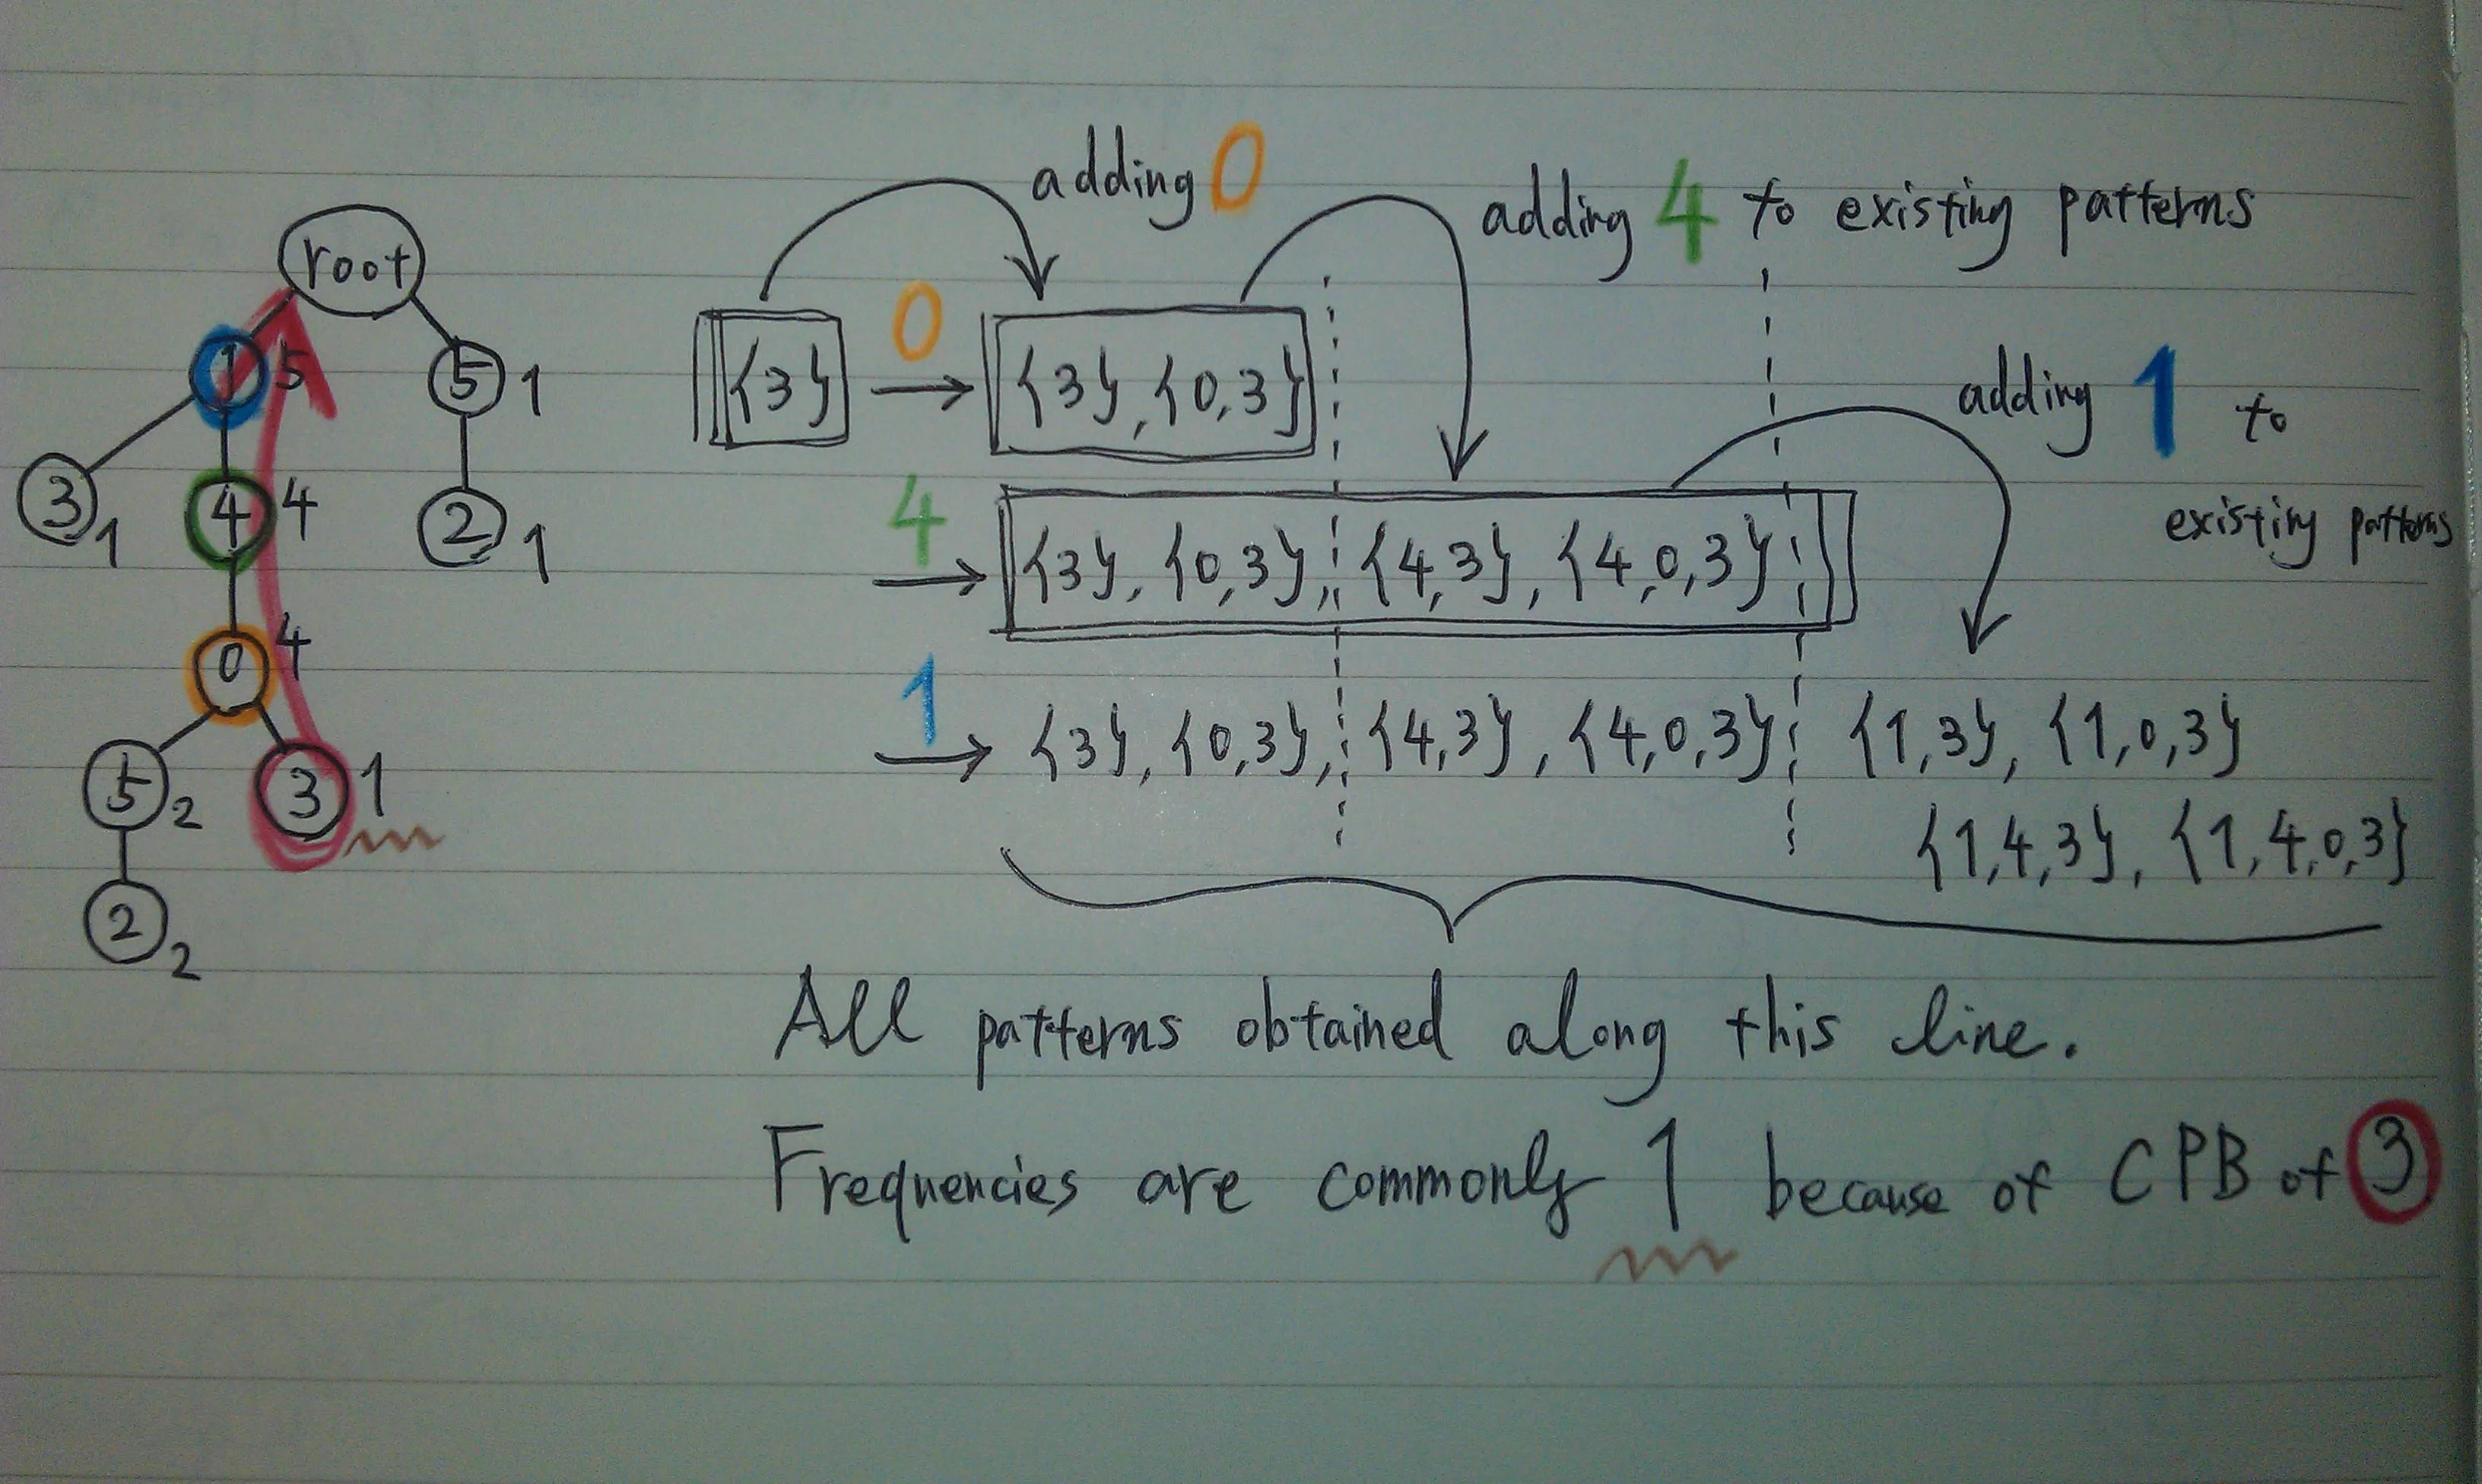 adding 0
adding 4 to existing patterns
root
1 5
5 1
{3} 0 → {3}, {0,3}
adding 1 to
existing patterns
3 1
4 4
2 1
4 → {3}, {0,3}, {4,3}, {4,0,3}
0 4
1 → {3}, {0,3}, {4,3}, {4,0,3} {1,3}, {1,0,3}
5 2
3 1
{1,4,3}, {1,4,0,3}
2 2
All patterns obtained along this line.
Frequencies are commonly 1 because of CPB of 3